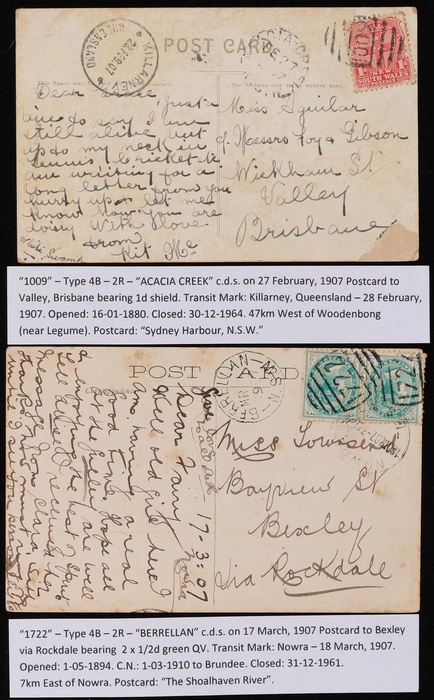 POST CARD
KILLARNEY
28 FEB 07
QUEENSLAND
ACACIA CR
FE 27
N.S.W
NEW
SOUTH WALES
Dear just a
line to say I am
still alive but
up to my neck in
tennis & cricket &c
am waiting for a
long letter from you
hurry up & let me
know how you are
doing With love
from
Kit Mc
White Swamp
Miss Aguilar
Messrs Foy & Gibson
Wickham St
Valley
Brisbane
"1009" – Type 4B – 2R – "ACACIA CREEK" c.d.s. on 27 February, 1907 Postcard to
Valley, Brisbane bearing 1d shield. Transit Mark: Killarney, Queensland – 28 February,
1907. Opened: 16-01-1880. Closed: 30-12-1964. 47km West of Woodenbong
(near Legume). Postcard: "Sydney Harbour, N.S.W."
POST CARD
BERRELLAN
N.S.W
17-3-07
Dear Fanny
Well old girl here I
am having a real
good time. Hope all
at the are well
Miss Townsend
Bayview St
Bexley
Via Rockdale
"1722" – Type 4B – 2R – "BERRELLAN" c.d.s. on 17 March, 1907 Postcard to Bexley
via Rockdale bearing 2 x 1/2d green QV. Transit Mark: Nowra – 18 March, 1907.
Opened: 1-05-1894. C.N.: 1-03-1910 to Brundee. Closed: 31-12-1961.
7km East of Nowra. Postcard: "The Shoalhaven River".